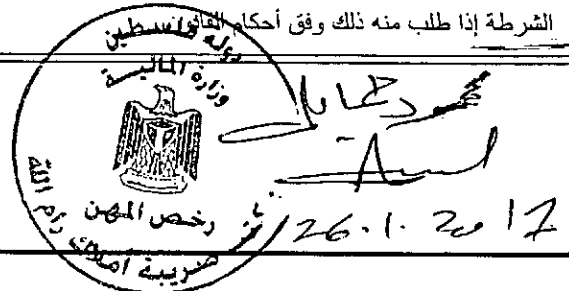 الشرطة إذا طلب منه ذلك وفق أحكام
دولة فلسطين
وزارة المالية
رخص المهن
ضريبة أملاك رام الله
26.1.2017